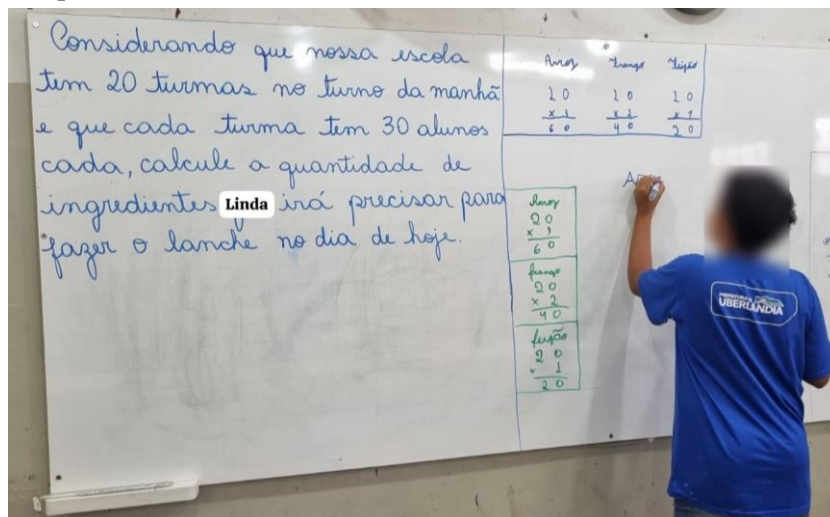 Considerando que nossa escola
tem 20 turmas no turno da manhã
e que cada turma tem 30 alunos
cada, calcule a quantidade de
ingredientes Linda irá precisar para
fazer o lanche no dia de hoje.
Arroz Frango Feijão
20 20 20
x 3 x 2 x 1
60 40 20
Arroz
20
x 3
60
frango
20
x 2
40
feijão
20
x 1
20
PREFEITURA DE
UBERLÂNDIA